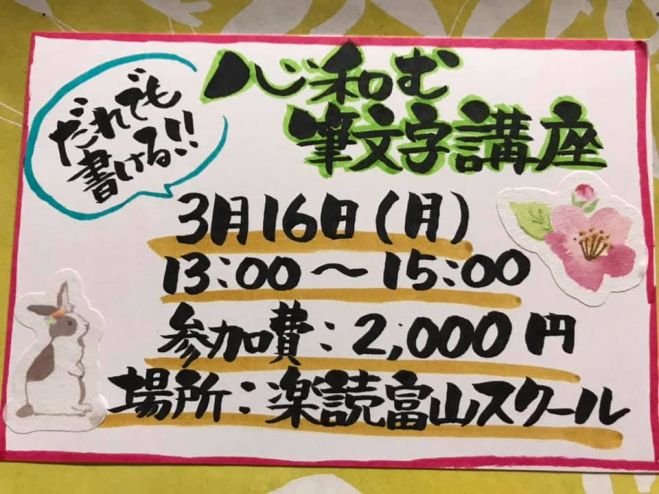 だれでも
書ける!!
心和む
筆文字講座
3月16日(月)
13:00〜15:00
参加費:2,000円
場所:楽読富山スクール